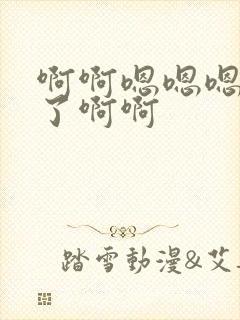 啊啊嗯嗯嗯
了啊啊
踏雪動漫&艾